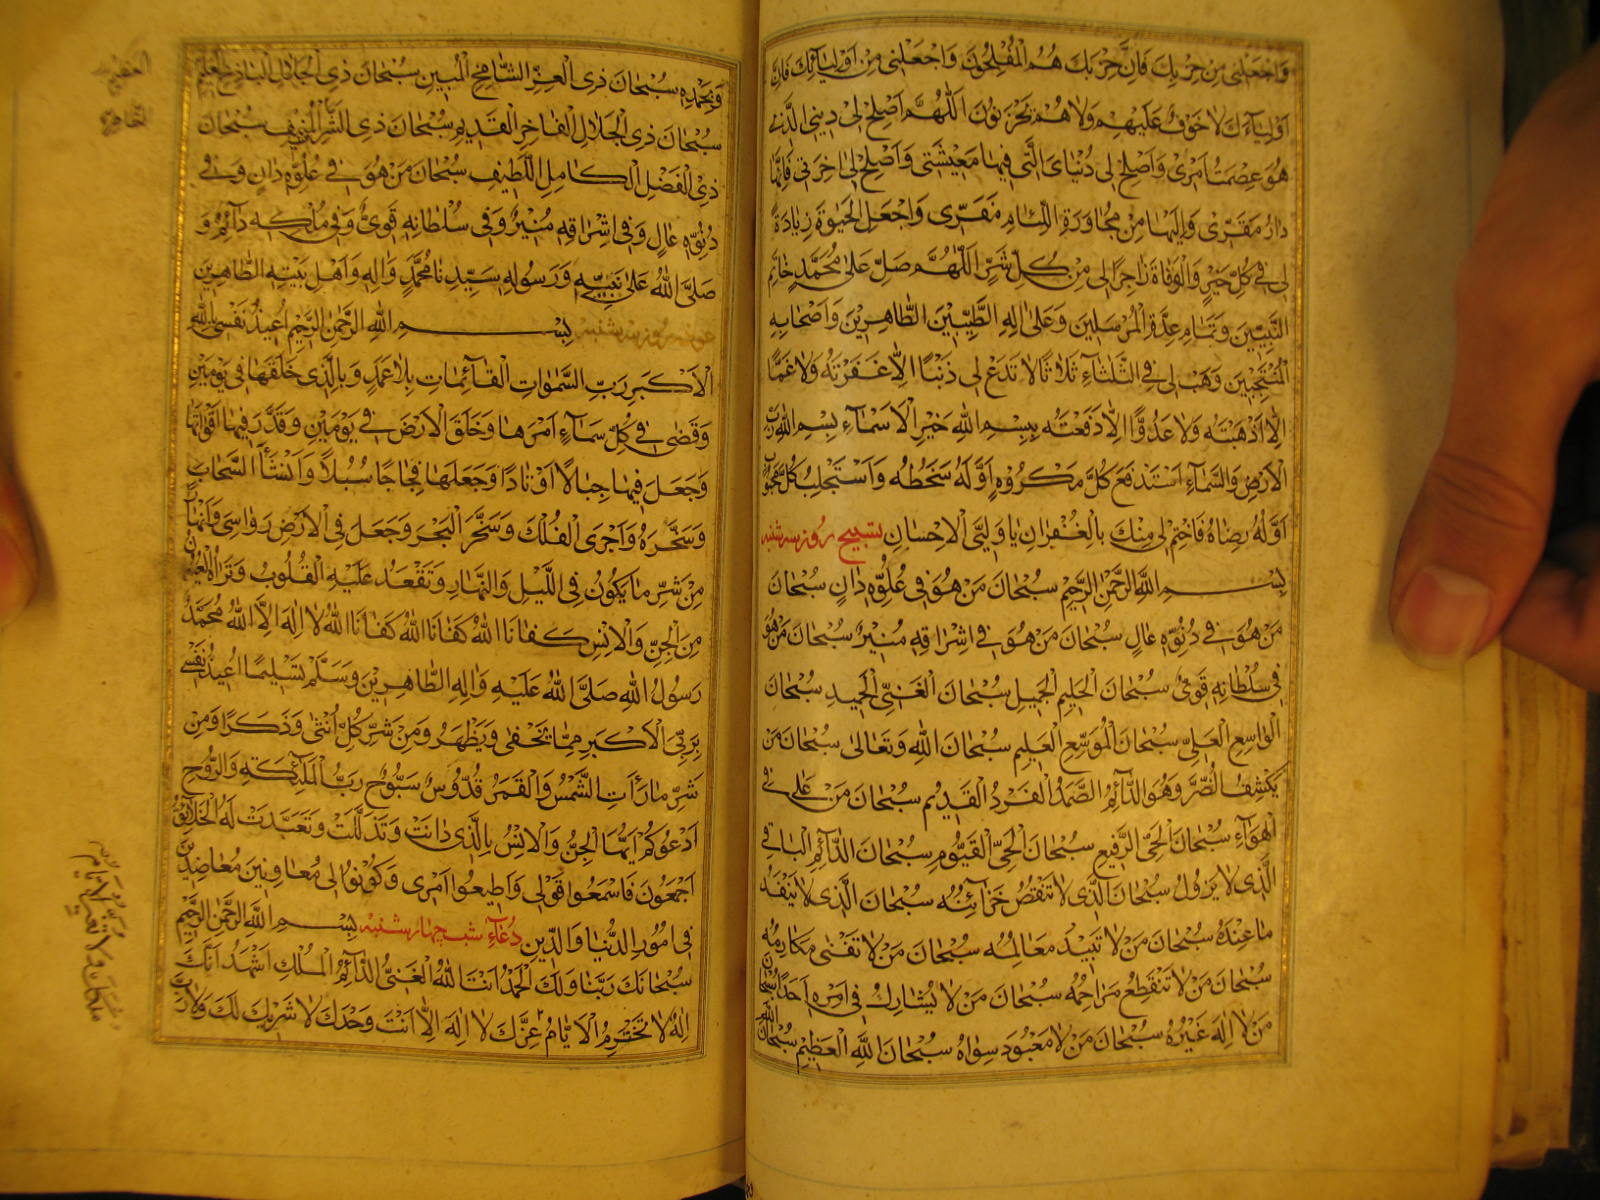 وَاجْعَلْنِي مِنْ حِزْبِكَ فَإِنَّ حِزْبَكَ هُمُ الْمُفْلِحُونَ وَاجْعَلْنِي مِنْ أَوْلِيَائِكَ فَإِنَّ
أَوْلِيَاءَكَ لَا خَوْفٌ عَلَيْهِمْ وَلَا هُمْ يَحْزَنُونَ اَللّٰهُمَّ أَصْلِحْ لِي دِينِي الَّذِي
هُوَ عِصْمَةُ أَمْرِي وَأَصْلِحْ لِي دُنْيَايَ الَّتِي فِيهَا مَعِيشَتِي وَأَصْلِحْ لِي آخِرَتِي فَإِنَّهَا
دَارُ مَقَرِّي وَإِلَيْهَا مِنْ مُجَاوَرَةِ اللِّئَامِ مَفَرِّي وَاجْعَلِ الْحَيٰوةَ زِيَادَةً
لِي فِي كُلِّ خَيْرٍ وَالْوَفَاةَ رَاحَةً لِي مِنْ كُلِّ شَرٍّ اَللّٰهُمَّ صَلِّ عَلَى مُحَمَّدٍ خَاتَمِ
النَّبِيِّينَ وَتَمَامِ عِدَّةِ الْمُرْسَلِينَ وَعَلَى آلِهِ الطَّيِّبِينَ الطَّاهِرِينَ وَأَصْحَابِهِ
الْمُنْتَجَبِينَ وَهَبْ لِي فِي الثَّلَاثَاءِ ثَلَاثًا لَا تَدَعْ لِي ذَنْبًا إِلَّا غَفَرْتَهُ وَلَا غَمًّا
إِلَّا أَذْهَبْتَهُ وَلَا عَدُوًّا إِلَّا دَفَعْتَهُ بِبِسْمِ اللّٰهِ خَيْرِ الْأَسْمَاءِ بِسْمِ اللّٰهِ رَبِّ
الْأَرْضِ وَالسَّمَاءِ أَسْتَدْفِعُ كُلَّ مَكْرُوهٍ أَوَّلُهُ سَخَطُهُ وَأَسْتَجْلِبُ كُلَّ مَحْبُوبٍ
أَوَّلُهُ رِضَاهُ فَاخْتِمْ لِي مِنْكَ بِالْغُفْرَانِ يَا وَلِيَّ الْإِحْسَانِ تسبيح روز سه شنبه
بِسْمِ اللّٰهِ الرَّحْمٰنِ الرَّحِيمِ سُبْحَانَ مَنْ هُوَ فِي عُلُوِّهِ دَانٍ سُبْحَانَ
مَنْ هُوَ فِي دُنُوِّهِ عَالٍ سُبْحَانَ مَنْ هُوَ فِي إِشْرَاقِهِ مُنِيرٌ سُبْحَانَ مَنْ هُوَ
فِي سُلْطَانِهِ قَوِيٌّ سُبْحَانَ الْحَلِيمِ الْجَمِيلِ سُبْحَانَ الْغَنِيِّ الْحَمِيدِ سُبْحَانَ
الْوَاسِعِ الْعَلِيِّ سُبْحَانَ الْمُوَسِّعِ الْعَلِيمِ سُبْحَانَ اللّٰهِ وَتَعَالَى سُبْحَانَ مَنْ
يَكْشِفُ الضُّرَّ وَهُوَ الدَّائِمُ الصَّمَدُ الْفَرْدُ الْقَدِيمُ سُبْحَانَ مَنْ عَلَى فِي
الْهَوَاءِ سُبْحَانَ الْحَيِّ الرَّفِيعِ سُبْحَانَ الْحَيِّ الْقَيُّومِ سُبْحَانَ الدَّائِمِ الْبَاقِي
الَّذِي لَا يَزُولُ سُبْحَانَ الَّذِي لَا تَنْقُصُ خَزَائِنُهُ سُبْحَانَ الَّذِي لَا يَنْفَدُ
مَا عِنْدَهُ سُبْحَانَ مَنْ لَا تَبِيدُ مَعَالِمُهُ سُبْحَانَ مَنْ لَا تَفْنَى مَكَارِمُهُ
سُبْحَانَ مَنْ لَا تَنْقَطِعُ مَرَاحِمُهُ سُبْحَانَ مَنْ لَا يُشَارِكُ فِي أَمْرِهِ أَحَدًا سُبْحَانَ
مَنْ لَا إِلٰهَ غَيْرُهُ سُبْحَانَ مَنْ لَا مَعْبُودَ سِوَاهُ سُبْحَانَ اللّٰهِ الْعَظِيمِ سُبْحَانَ اللّٰهِ
وَبِحَمْدِهِ سُبْحَانَ ذِي الْعِزِّ الشَّامِخِ الْمُبِينِ سُبْحَانَ ذِي الْجَلَالِ الْبَاذِخِ الْعَظِيمِ
سُبْحَانَ ذِي الْجَلَالِ الْفَاخِرِ الْقَدِيمِ سُبْحَانَ ذِي الشَّرَفِ الْمُنِيفِ سُبْحَانَ
ذِي الْفَضْلِ الْكَامِلِ اللَّطِيفِ سُبْحَانَ مَنْ هُوَ فِي عُلُوِّهِ دَانٍ وَفِي
دُنُوِّهِ عَالٍ وَفِي إِشْرَاقِهِ مُنِيرٌ وَفِي سُلْطَانِهِ قَوِيٌّ وَفِي مُلْكِهِ دَائِمٌ وَ
صَلَّى اللّٰهُ عَلَى نَبِيِّهِ وَرَسُولِهِ سَيِّدِنَا مُحَمَّدٍ وَآلِهِ وَأَهْلِ بَيْتِهِ الطَّاهِرِينَ
بِسْمِ اللّٰهِ الرَّحْمٰنِ الرَّحِيمِ أُعِيذُ نَفْسِي بِاللّٰهِ
الْأَكْبَرِ رَبِّ السَّمٰوَاتِ الْقَائِمَاتِ بِلَا عَمَدٍ وَبِالَّذِي خَلَقَهَا فِي يَوْمَيْنِ
وَقَضَى فِي كُلِّ سَمَاءٍ أَمْرَهَا وَخَلَقَ الْأَرْضَ فِي يَوْمَيْنِ وَقَدَّرَ فِيهَا أَقْوَاتَهَا
وَجَعَلَ فِيهَا جِبَالًا أَوْتَادًا وَجَعَلَهَا فِجَاجًا سُبُلًا وَأَنْشَأَ السَّحَابَ
وَسَخَّرَهُ وَأَجْرَى الْفُلْكَ وَسَخَّرَ الْبَحْرَ وَجَعَلَ فِي الْأَرْضِ رَوَاسِيَ وَأَنْهَارًا
مِنْ شَرِّ مَا يَكُونُ فِي اللَّيْلِ وَالنَّهَارِ وَتَعْقِدُ عَلَيْهِ الْقُلُوبُ وَتَرَاهُ الْعُيُونُ
مِنَ الْجِنِّ وَالْإِنْسِ كَفَانَا اللّٰهُ كَفَانَا اللّٰهُ كَفَانَا اللّٰهُ لَا إِلٰهَ إِلَّا اللّٰهُ مُحَمَّدٌ
رَسُولُ اللّٰهِ صَلَّى اللّٰهُ عَلَيْهِ وَآلِهِ الطَّاهِرِينَ وَسَلَّمَ تَسْلِيمًا أُعِيذُ نَفْسِي
بِرَبِّيَ الْأَكْبَرِ مِمَّا يَخْفَى وَيَظْهَرُ وَمِنْ شَرِّ كُلِّ أُنْثَى وَذَكَرًا وَمِنْ
شَرِّ مَا رَأَتِ الشَّمْسُ وَالْقَمَرُ قُدُّوسٌ سَبُّوحٌ رَبُّ الْمَلٰئِكَةِ وَالرُّوحِ
أَدْعُوكُمْ أَيُّهَا الْجِنُّ وَالْإِنْسُ بِالَّذِي دَانَتْ وَتَذَلَّلَتْ وَتَعَبَّدَتْ لَهُ الْخَلَائِقُ
أَجْمَعُونَ فَاسْمَعُوا قَوْلِي وَأَطِيعُوا أَمْرِي وَكُونُوا لِي مُعَاوِنِينَ مُعَاضِدِينَ
فِي أُمُورِ الدُّنْيَا وَالدِّينِ دُعَاءِ شب چهارشنبه بِسْمِ اللّٰهِ الرَّحْمٰنِ الرَّحِيمِ
سُبْحَانَكَ رَبَّنَا وَلَكَ الْحَمْدُ أَنْتَ اللّٰهُ الْغَنِيُّ الدَّائِمُ الْمَلِكُ أَشْهَدُ أَنَّكَ
إِلٰهٌ لَا تَخْتَرِمُ الْأَيَّامُ عِزَّكَ لَا إِلٰهَ إِلَّا أَنْتَ وَحْدَكَ لَا شَرِيكَ لَكَ وَلَا رَبَّ
العظيم
ملكك ولا تغيير الأيام